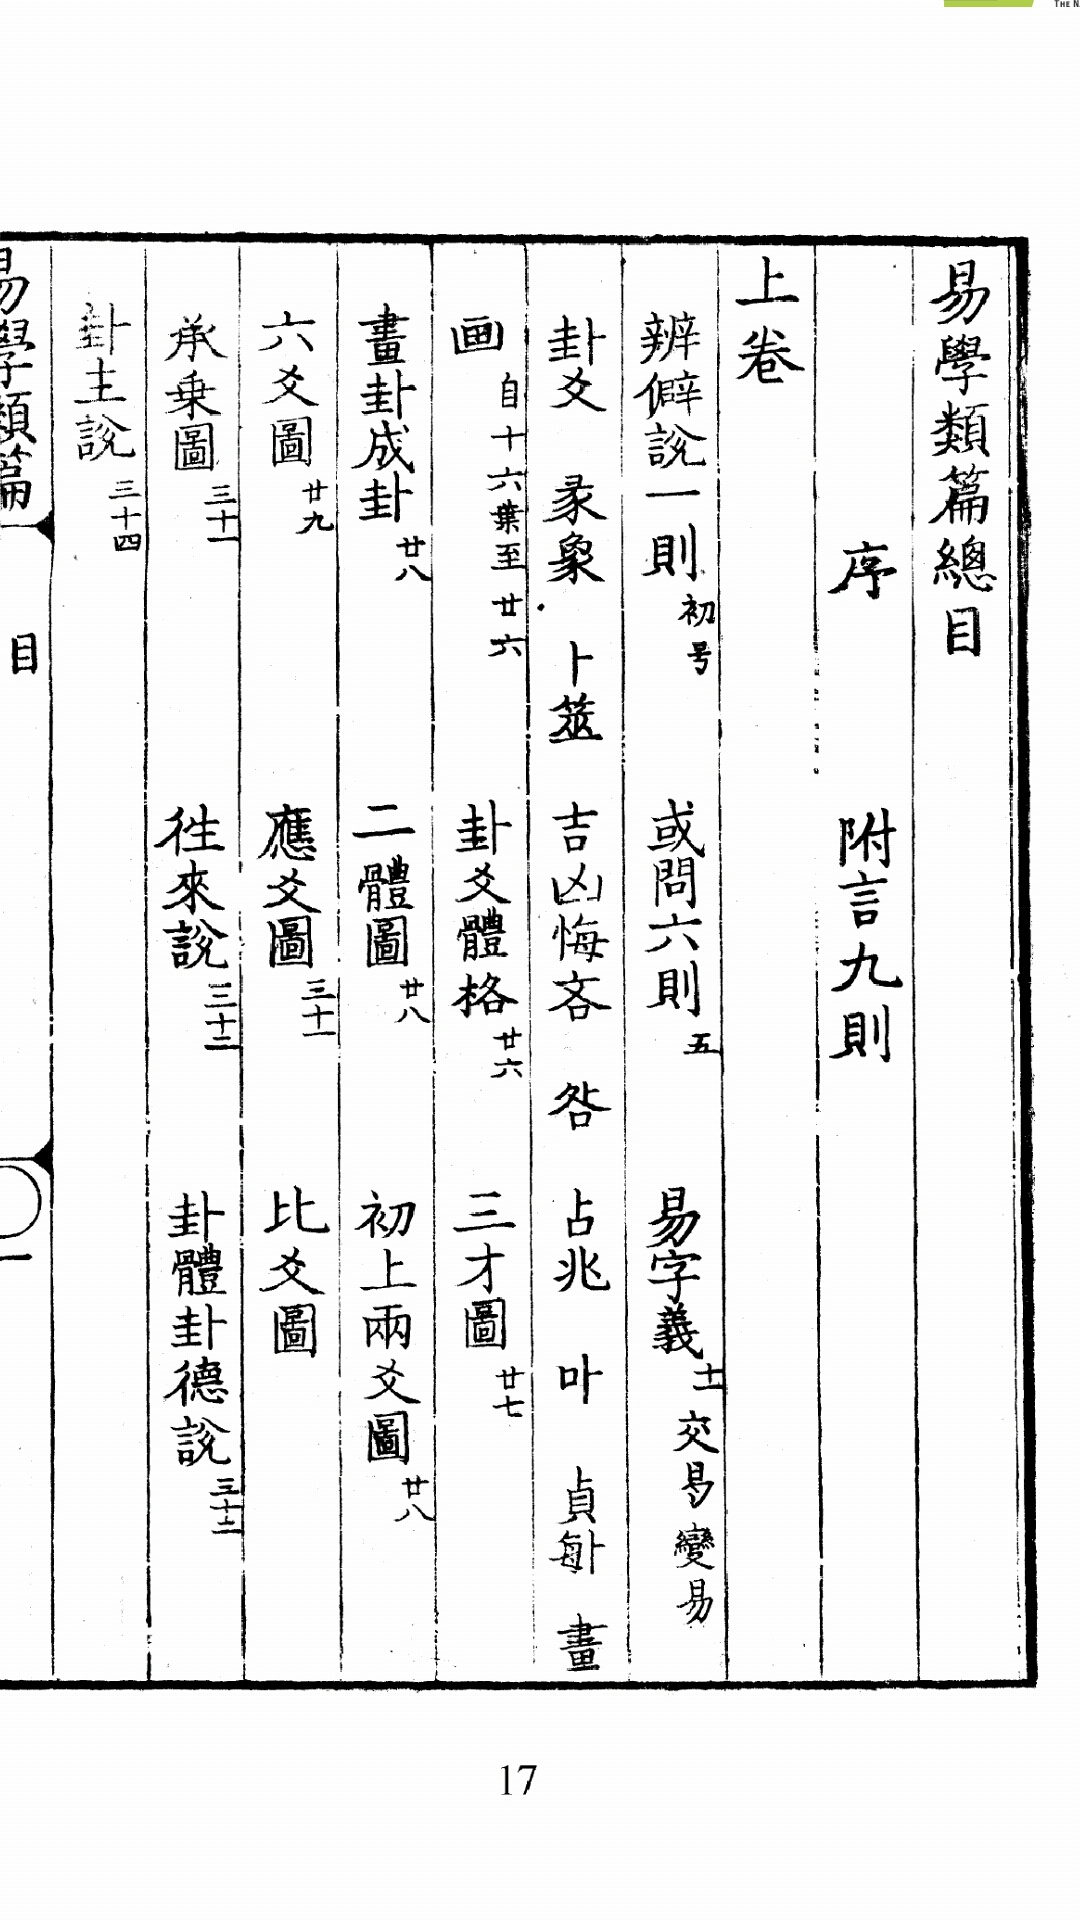 易學類篇總目
序 附言九則
上卷
辨僻說一則 初号 或問六則 五 易字義 十一 交易變易
卦爻 彖象 卜筮 吉凶悔吝 咎 占兆 叶 貞 畫
画 自十六葉至廿六 卦爻體格 廿六 三才圖 廿七
畫卦成卦 廿八 二體圖 廿八 初上兩爻圖 廿八
六爻圖 廿九 應爻圖 三十一 比爻圖
承乗圖 三十一 徃來說 三十二 卦體卦德說 三十二
卦主說 三十四
易學類篇 目 一
17